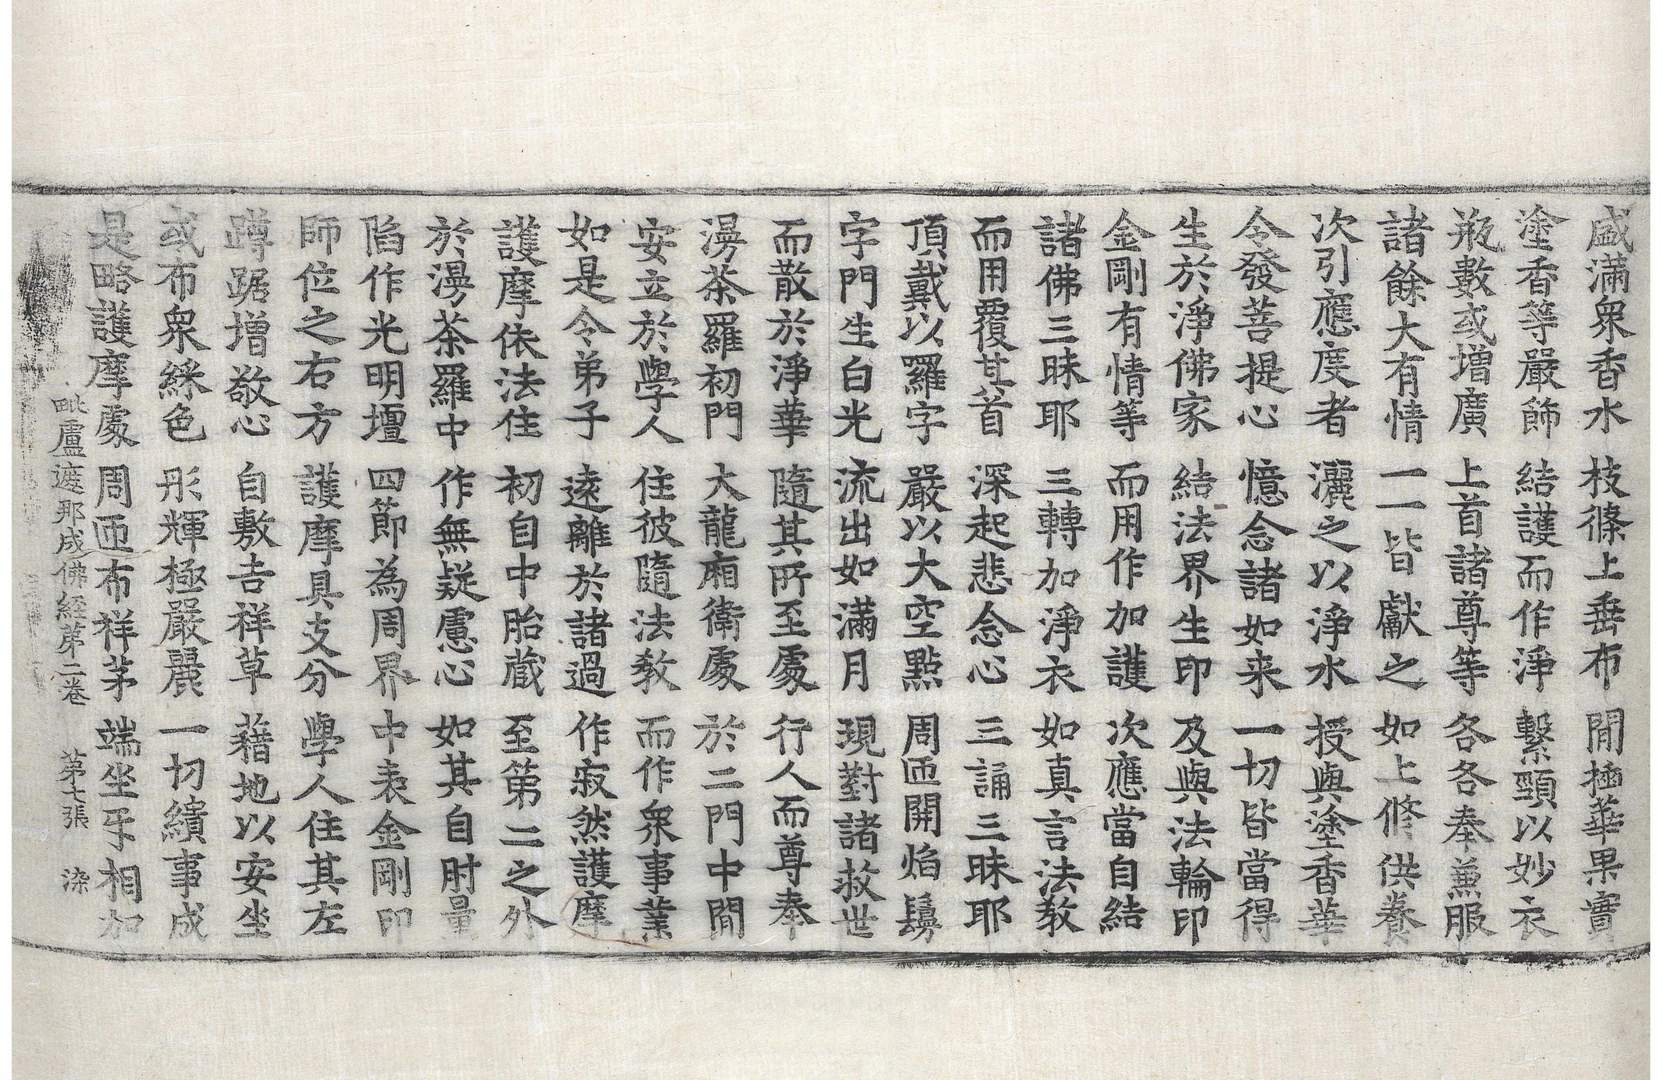 盛滿衆香水 枝條上垂布 間揷華果實
塗香等嚴飾 結護而作淨 繫頸以妙衣
瓶數或增廣 上首諸尊等 各各奉兼服
諸餘大有情 一一皆獻之 如上修供養
次引應度者 灑之以淨水 授與塗香華
令發菩提心 憶念諸如来 一切皆當得
生於淨佛家 結法界生印 及與法輪印
金剛有情等 而用作加護 次應當自結
諸佛三昧耶 三轉加淨衣 如真言法教
而用覆其首 深起悲念心 三誦三昧耶
頂戴以羅字 嚴以大空點 周匝開焰鬘
字門生白光 流出如滿月 現對諸救世
而散於淨華 隨其所至處 行人而尊奉
漫荼羅初門 大龍廂衛處 於二門中間
安立於學人 住彼隨法教 而作衆事業
如是令弟子 遠離於諸過 作寂然護摩
護摩依法住 初自中胎藏 至第二之外
於漫荼羅中 作無疑慮心 如其自肘量
陷作光明壇 四節為周界 中表金剛印
師位之右方 護摩具支分 學人住其左
蹲踞增敬心 自敷吉祥草 藉地以安坐
或布衆綵色 彤輝極嚴麗 一切繢事成
是略護摩處 周匝布祥茅 端坐牙相加
毗盧遮那成佛経第二卷 第七張 染